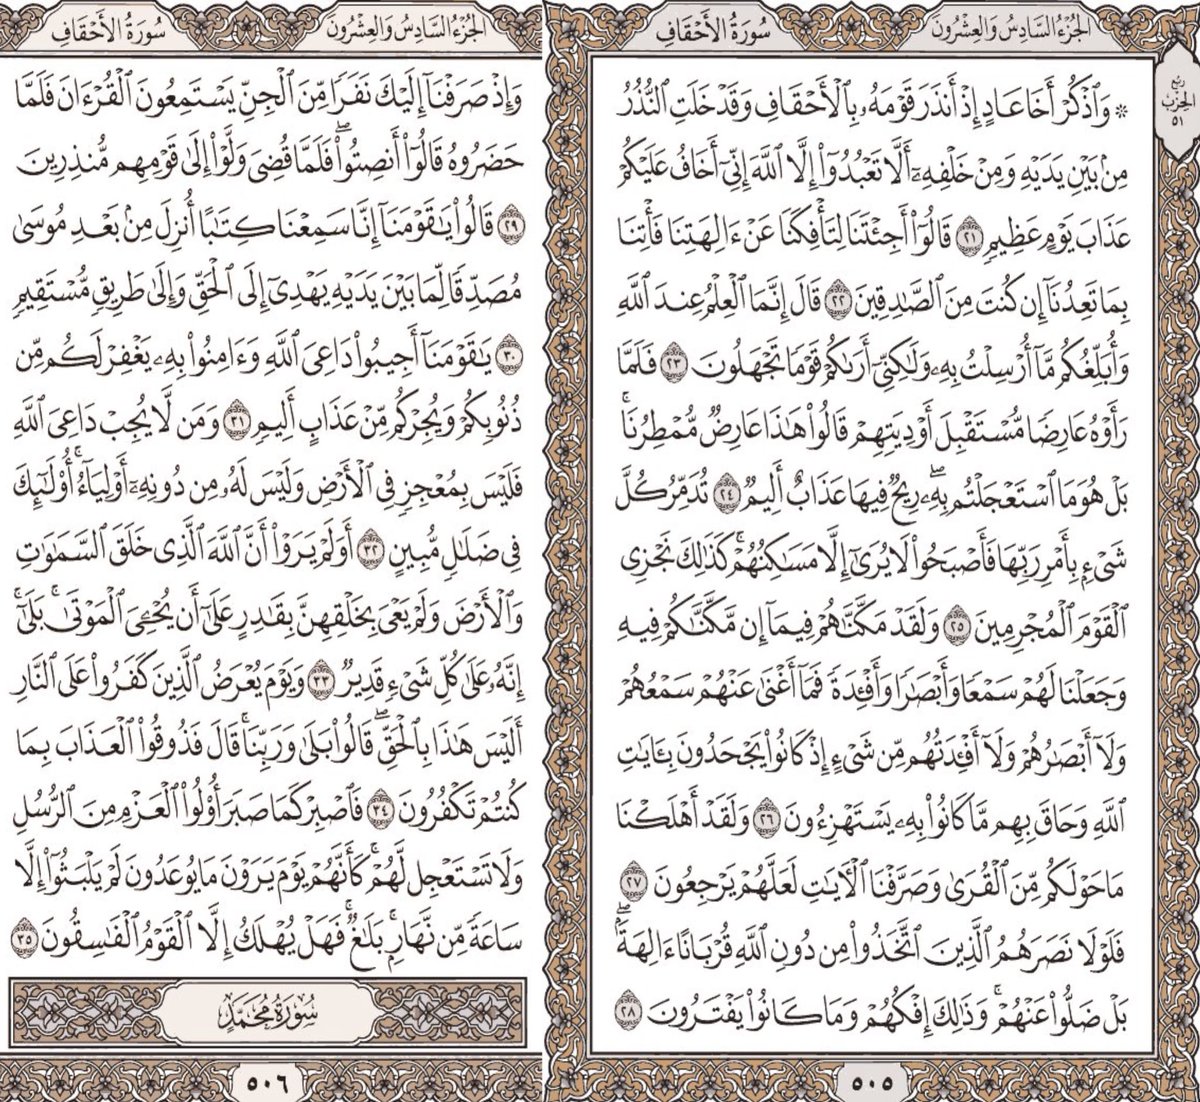 الجزء السادس والعشرون
سورة الأحقاف
ربع
الحزب
٥١
۞ وَٱذۡكُرۡ أَخَا عَادٍ إِذۡ أَنذَرَ قَوۡمَهُۥ بِٱلۡأَحۡقَافِ وَقَدۡ خَلَتِ ٱلنُّذُرُ
مِنۢ بَيۡنِ يَدَيۡهِ وَمِنۡ خَلۡفِهِۦٓ أَلَّا تَعۡبُدُوٓاْ إِلَّا ٱللَّهَ إِنِّيٓ أَخَافُ عَلَيۡكُمۡ
عَذَابَ يَوۡمٍ عَظِيمٖ ٢١ قَالُوٓاْ أَجِئۡتَنَا لِتَأۡفِكَنَا عَنۡ ءَالِهَتِنَا فَأۡتِنَا
بِمَا تَعِدُنَآ إِن كُنتَ مِنَ ٱلصَّٰدِقِينَ ٢٢ قَالَ إِنَّمَا ٱلۡعِلۡمُ عِندَ ٱللَّهِ
وَأُبَلِّغُكُم مَّآ أُرۡسِلۡتُ بِهِۦ وَلَٰكِنِّيٓ أَرَىٰكُمۡ قَوۡمٗا تَجۡهَلُونَ ٢٣ فَلَمَّا
رَأَوۡهُ عَارِضٗا مُّسۡتَقۡبِلَ أَوۡدِيَتِهِمۡ قَالُواْ هَٰذَا عَارِضٞ مُّمۡطِرُنَاۚ
بَلۡ هُوَ مَا ٱسۡتَعۡجَلۡتُم بِهِۦۖ رِيحٞ فِيهَا عَذَابٌ أَلِيمٞ ٢٤ تُدَمِّرُ كُلَّ
شَيۡءِۭ بِأَمۡرِ رَبِّهَا فَأَصۡبَحُواْ لَا يُرَىٰٓ إِلَّا مَسَٰكِنُهُمۡۚ كَذَٰلِكَ نَجۡزِي
ٱلۡقَوۡمَ ٱلۡمُجۡرِمِينَ ٢٥ وَلَقَدۡ مَكَّنَّٰهُمۡ فِيمَآ إِن مَّكَّنَّٰكُمۡ فِيهِ
وَجَعَلۡنَا لَهُمۡ سَمۡعٗا وَأَبۡصَٰرٗا وَأَفۡـِٔدَةٗ فَمَآ أَغۡنَىٰ عَنۡهُمۡ سَمۡعُهُمۡ
وَلَآ أَبۡصَٰرُهُمۡ وَلَآ أَفۡـِٔدَتُهُم مِّن شَيۡءٍ إِذۡ كَانُواْ يَجۡحَدُونَ بِـَٔايَٰتِ
ٱللَّهِ وَحَاقَ بِهِم مَّا كَانُواْ بِهِۦ يَسۡتَهۡزِءُونَ ٢٦ وَلَقَدۡ أَهۡلَكۡنَا
مَا حَوۡلَكُم مِّنَ ٱلۡقُرَىٰ وَصَرَّفۡنَا ٱلۡأٓيَٰتِ لَعَلَّهُمۡ يَرۡجِعُونَ ٢٧
فَلَوۡلَا نَصَرَهُمُ ٱلَّذِينَ ٱتَّخَذُواْ مِن دُونِ ٱللَّهِ قُرۡبَانًا ءَالِهَةَۢۖ
بَلۡ ضَلُّواْ عَنۡهُمۡۚ وَذَٰلِكَ إِفۡكُهُمۡ وَمَا كَانُواْ يَفۡتَرُونَ ٢٨
٥٠٥
الجزء السادس والعشرون
سورة الأحقاف
وَإِذۡ صَرَفۡنَآ إِلَيۡكَ نَفَرٗا مِّنَ ٱلۡجِنِّ يَسۡتَمِعُونَ ٱلۡقُرۡءَانَ فَلَمَّا
حَضَرُوهُ قَالُوٓاْ أَنصِتُواْۖ فَلَمَّا قُضِيَ وَلَّوۡاْ إِلَىٰ قَوۡمِهِم مُّنذِرِينَ
٢٩ قَالُواْ يَٰقَوۡمَنَآ إِنَّا سَمِعۡنَا كِتَٰبًا أُنزِلَ مِنۢ بَعۡدِ مُوسَىٰ
مُصَدِّقٗا لِّمَا بَيۡنَ يَدَيۡهِ يَهۡدِيٓ إِلَى ٱلۡحَقِّ وَإِلَىٰ طَرِيقٖ مُّسۡتَقِيمٖ
٣٠ يَٰقَوۡمَنَآ أَجِيبُواْ دَاعِيَ ٱللَّهِ وَءَامِنُواْ بِهِۦ يَغۡفِرۡ لَكُم مِّن
ذُنُوبِكُمۡ وَيُجِرۡكُم مِّنۡ عَذَابٍ أَلِيمٖ ٣١ وَمَن لَّا يُجِبۡ دَاعِيَ ٱللَّهِ
فَلَيۡسَ بِمُعۡجِزٖ فِي ٱلۡأَرۡضِ وَلَيۡسَ لَهُۥ مِن دُونِهِۦٓ أَوۡلِيَآءُۚ أُوْلَٰٓئِكَ
فِي ضَلَٰلٖ مُّبِينٍ ٣٢ أَوَلَمۡ يَرَوۡاْ أَنَّ ٱللَّهَ ٱلَّذِي خَلَقَ ٱلسَّمَٰوَٰتِ
وَٱلۡأَرۡضَ وَلَمۡ يَعۡيَ بِخَلۡقِهِنَّ بِقَٰدِرٍ عَلَىٰٓ أَن يُحۡـِۧيَ ٱلۡمَوۡتَىٰۚ بَلَىٰٓۚ
إِنَّهُۥ عَلَىٰ كُلِّ شَيۡءٖ قَدِيرٞ ٣٣ وَيَوۡمَ يُعۡرَضُ ٱلَّذِينَ كَفَرُواْ عَلَى ٱلنَّارِ
أَلَيۡسَ هَٰذَا بِٱلۡحَقِّۖ قَالُواْ بَلَىٰ وَرَبِّنَاۚ قَالَ فَذُوقُواْ ٱلۡعَذَابَ بِمَا
كُنتُمۡ تَكۡفُرُونَ ٣٤ فَٱصۡبِرۡ كَمَا صَبَرَ أُوْلُواْ ٱلۡعَزۡمِ مِنَ ٱلرُّسُلِ
وَلَا تَسۡتَعۡجِل لَّهُمۡۚ كَأَنَّهُمۡ يَوۡمَ يَرَوۡنَ مَا يُوعَدُونَ لَمۡ يَلۡبَثُوٓاْ إِلَّا
سَاعَةٗ مِّن نَّهَارِۭۚ بَلَٰغٞۚ فَهَلۡ يُهۡلَكُ إِلَّا ٱلۡقَوۡمُ ٱلۡفَٰسِقُونَ ٣٥
سُورَةُ مُحَمَّدٍ
٥٠٦